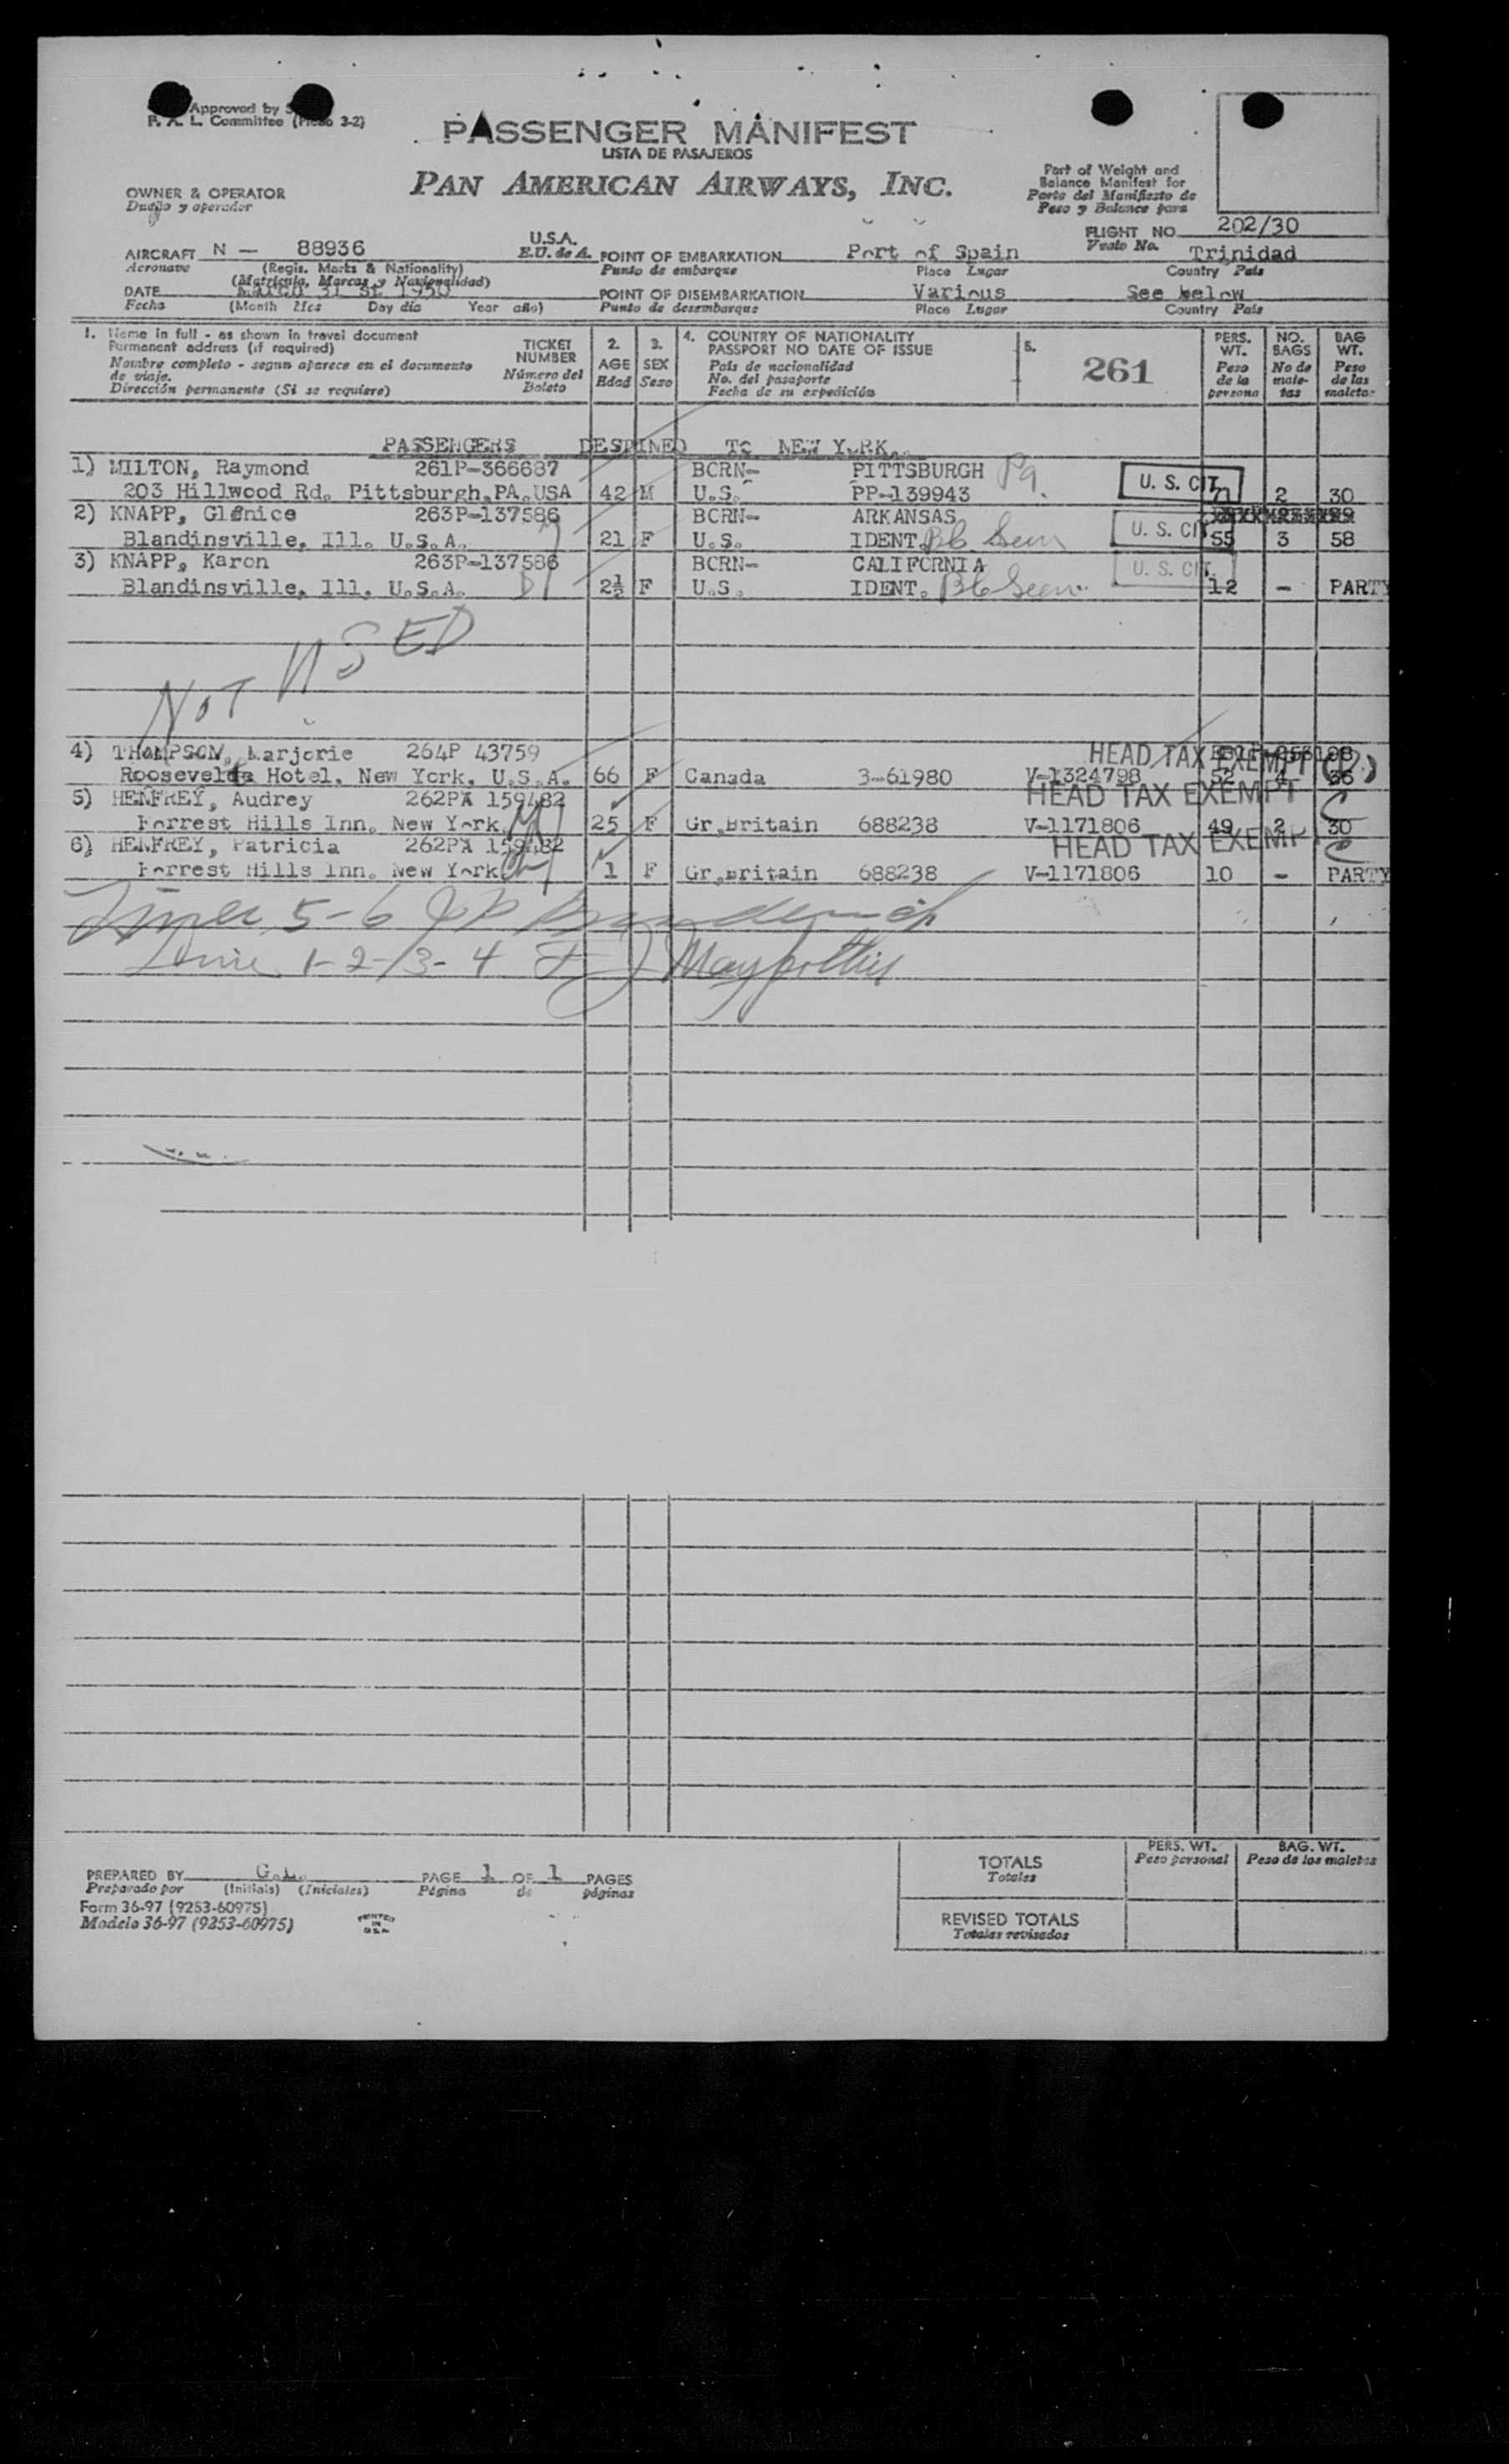 Approved by
F. A. L. Committee ( 3-2)
PASSENGER MANIFEST
LISTA DE PASAJEROS
PAN AMERICAN AIRWAYS, INC.
OWNER & OPERATOR
Dueño y operador
Part of Weight and
Balance Manifest for
Parte del Manifiesto de
Peso y Balance para
FLIGHT NO. 202/30
Vuelo No.
AIRCRAFT N — 88936 U.S.A. POINT OF EMBARKATION Port of Spain Trinidad
Aeronave (Regis. Marks & Nationality) E.U. de A. Punto de embarque Place Lugar Country País
(Matrícula, Marcas y Nacionalidad)
DATE March 31 st 1950 POINT OF DISEMBARKATION Various See below
Fecha (Month Mes Day día Year año) Punto de desembarque Place Lugar Country País
1. Name in full - as shown in travel document
Permanent address (if required)
Nombre completo - segun aparece en el documento
de viaje.
Dirección permanente (Si se requiere)
TICKET
NUMBER
Número del
Boleto
2.
AGE
Edad
3.
SEX
Sexo
4. COUNTRY OF NATIONALITY
PASSPORT NO DATE OF ISSUE
País de nacionalidad
No. del pasaporte
Fecha de su expedición
5.
261
PERS.
WT.
Peso
de la
persona
NO.
BAGS
No de
male-
tas
BAG
WT.
Peso
de las
maletas
PASSENGERS DESTINED TO NEW YORK.
1) MILTON, Raymond 261P-366687 BORN- PITTSBURGH Pa.
203 Hillwood Rd. Pittsburgh,PA.USA 42 M U.S. PP-139943 U. S. CIT. 2 30
2) KNAPP, Glenice 263P-137586 BORN- ARKANSAS
Blandinsville, Ill. U.S.A. 21 F U.S. IDENT. BC Seen U. S. CIT. 55 3 58
3) KNAPP, Karon 263P-137586 BORN- CALIFORNIA
Blandinsville, Ill. U.S.A. 2½ F U.S. IDENT. BC Seen U. S. CIT. 12 - PARTY
NOT USED
4) THOMPSON, Marjorie 264P 43759 HEAD TAX EXEMPT
Roosevelt Hotel, New York, U.S.A. 66 F Canada 3-61980 V-1324798 52 4 36
5) HENFREY, Audrey 262PA 159482 HEAD TAX EXEMPT
Forrest Hills Inn, New York 25 F Gr.Britain 688238 V-1171806 49 2 30
6) HENFREY, Patricia 262PA 159482 HEAD TAX EXEMPT
Forrest Hills Inn. New York 1 F Gr.Britain 688238 V-1171806 10 - PARTY
Lines 5-6
Line 1-2-3-4
PREPARED BY G.L. PAGE 1 OF 1 PAGES
Preparado por (Initials) (Iniciales) Página de páginas
Form 36-97 (9253-60975)
Modelo 36-97 (9253-60975)
PRINTED
IN
U.S.A.
PERS. WT.
Peso personal
BAG. WT.
Peso de las maletas
TOTALS
Totales
REVISED TOTALS
Totales revisados